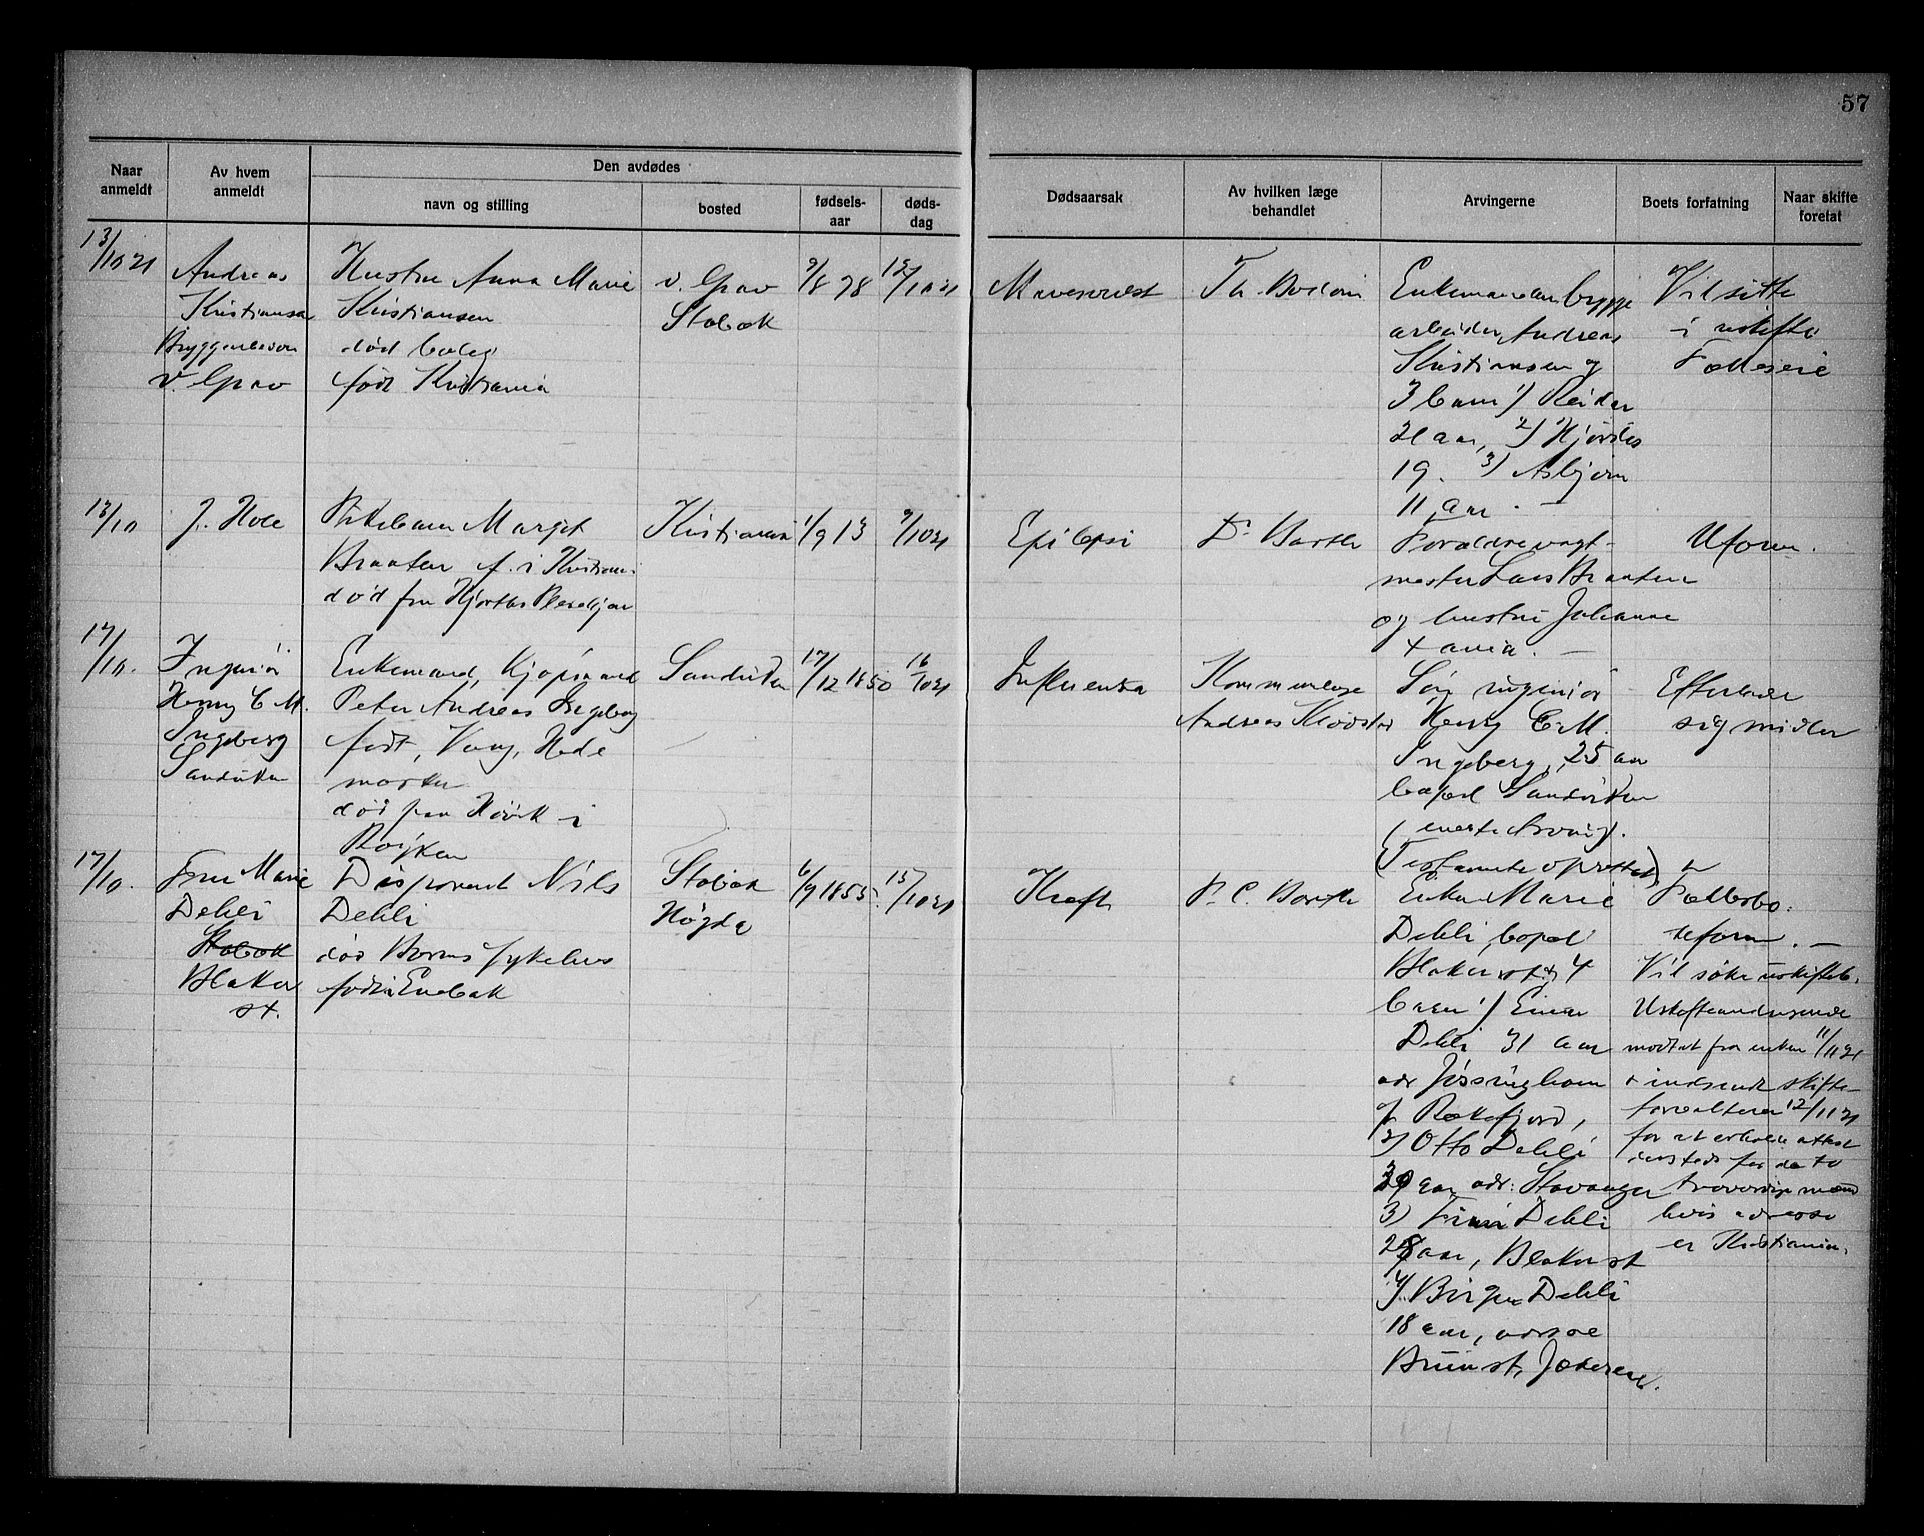 57
Naar anmeldt
Av hvem anmeldt
Den avdødes
navn og stilling
bosted
fødselsaar
dødsdag
Dødsaarsak
Av hvilken læge behandlet
Arvingerne
Boets forfatning
Naar skifte foretat
13/10 21
Andreas
Kristiansen
v. Grav
Hustru Anna Marie
Kristiansen
død
født Kristiania
v. Grav
Stabæk
9/8 78
12/10 21
Mavesvulst
Th.
Enkemanden bygge
arbeider Andreas
Kristiansen og
3 barn 1) Reidar
21 aar, 2) Hjørdis
19. 3) Asbjørn
11 aar. —
Vil sitte
i uskifte
Fælleseie
13/10
J. Hole
Pikebarn Margit
Braaten f. i Kristiania
død fru Hjorths Pleiehjem
Kristiania
1/9 13
9/10 21
Epilepsi
Dr Barth
Forældre vagt-
mester Lars Braaten
og hustru Johanne
X ania. —
Uform.
17/10.
Ingeniør
Henry C M.
Ingeberg
Sandviken
Enkemand, Kjøpmand
Peter Andreas Ingeberg
født, Vang, Hede
marken
død paa Hovik i
Røyken
Sandviken
17/12 1850
16/10 21
Influensa
Kommunelæge
Andreas Klovstad
Søn ingeniør
Henry C. M.
Ingeberg, 25 aar
bopæl Sandviken
(eneste Arving).
(Testamente oprettet)
Efterlader
sig midler
17/10.
Fru Marie
Dehli
Stabæk
Blaker
st.
Disponent Nils
Dehli
død Bærums sykehus
født i Enebak
Stabæk
Høgda
6/9 1855.
15/10 21
Kræft
Dr. C. Barth
Enken Marie
Dehli bopæl
Blaker st. & 4
barn 1) Einar
Dehli 31 aar
adr Jøssinghavn
pr Rekefjord,
2) Otto Dehli
29 aar adr: Stavanger
3) Finn Dehli
28 aar, Blaker st
4) Birger Dehli
18 aar, adresse
Bruin st, Jæderen.
Fællesbo.
uform. —
Vil søke uskifteb.
Uskifteandragende
modtat fra enken 11/11 21
+ indsendt skifte-
forvalteren 12/11 21
for at erholde attest
dersteds fra de to
troverdige mænd
hvis adresse
er Kristiania.